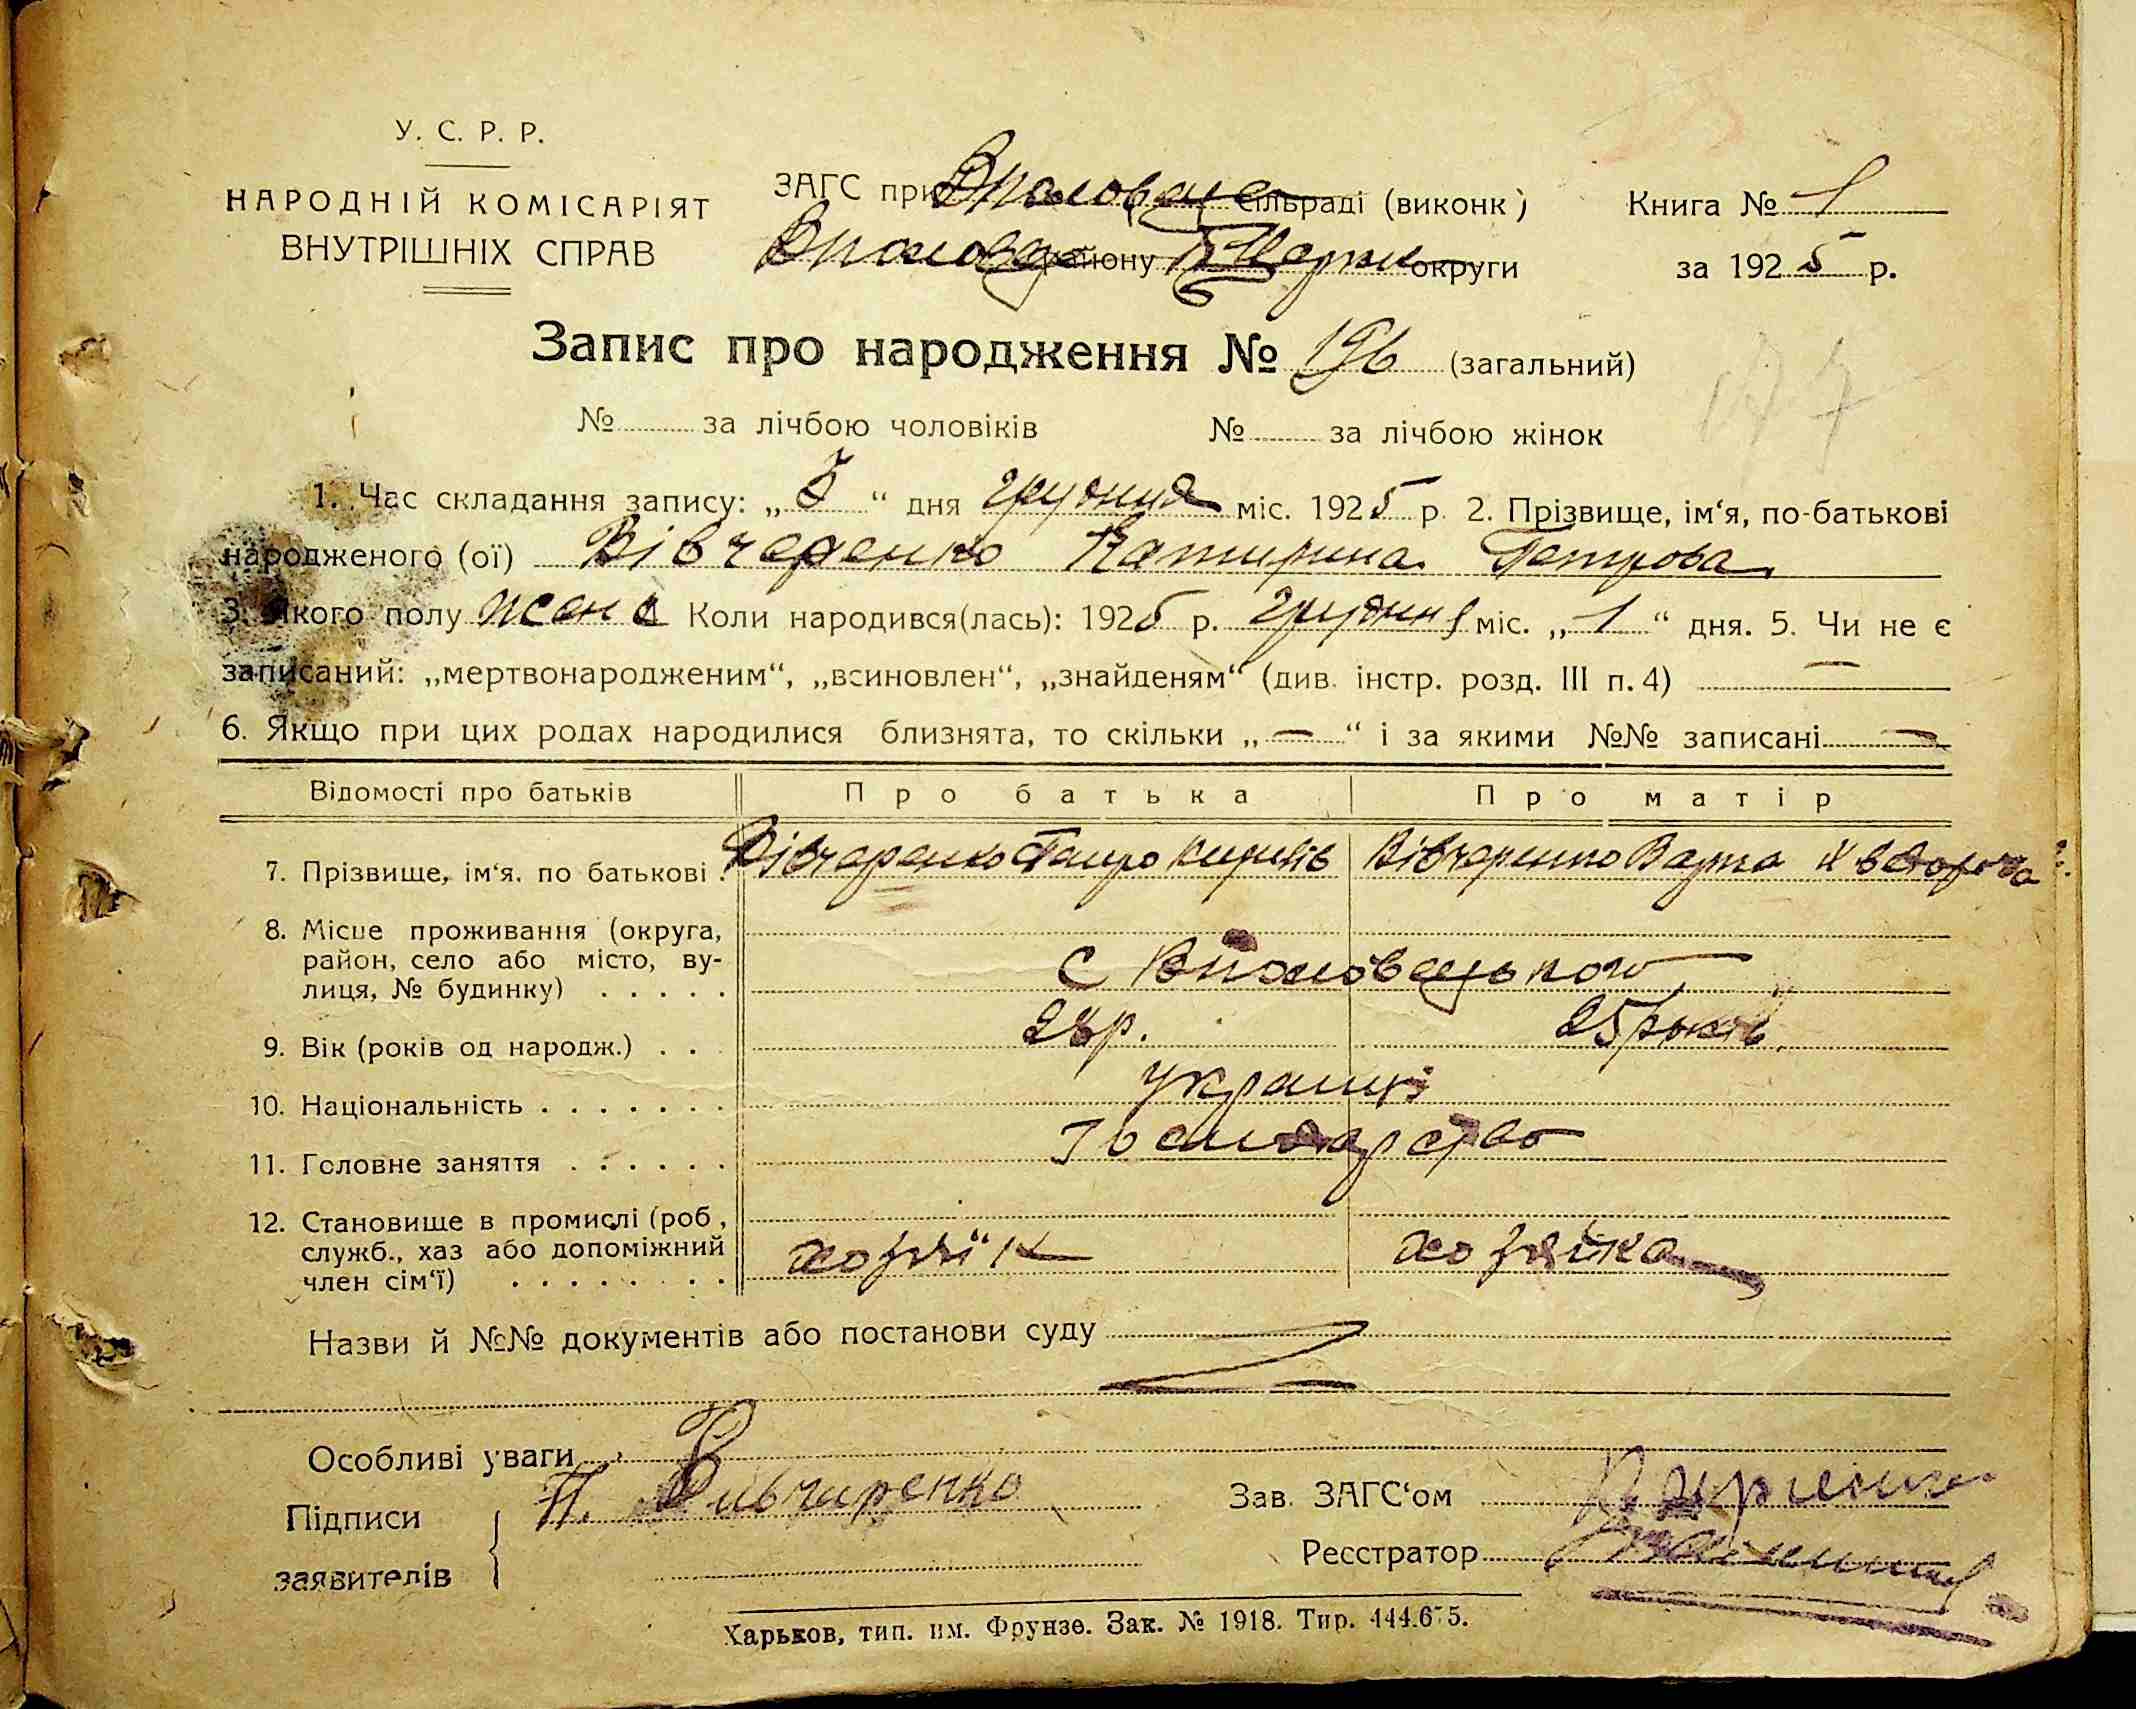 У. С. Р. Р.
НАРОДНІЙ КОМІСАРІЯТ
ВНУТРІШНІХ СПРАВ
ЗАГС при сільраді (виконк)
району округи
Книга № 1
за 1925 р.
Запис про народження № 196 (загальний)
№ за лічбою чоловіків № за лічбою жінок
1. Час складання запису: „ “ дня грудня міс. 1925 р. 2. Прізвище, ім‘я, по-батькові
народженого (ої) Вівчеренко Катирина Петрова
3. Якого полу жен Коли народився(лась): 1925 р. грудня міс. „1“ дня. 5. Чи не є
записаний: „мертвонародженим“, „всиновлен“, „знайденям“ (див. інстр. розд. III п. 4) —
6. Якщо при цих родах народилися близнята, то скільки „—“ і за якими №№ записані —
Відомості про батьків Про батька Про матір
7. Прізвище, ім‘я, по батькові. Вівчеренко Петро Кирилів Вівчеренко Варка
8. Місце проживання (округа,
район, село або місто, ву-
лиця, № будинку) . . . . . с
9. Вік (років од народж.) . . . 28р. 25 років
10. Національність . . . . . . . україці
11. Головне заняття . . . . . . Господарство
12. Становище в промислі (роб.,
служб., хаз або допоміжний
член сім‘ї) . . . . . . . . хозяїк хозяйка
Назви й №№ документів або постанови суду
Особливі уваги
Підписи
заявителів
П. Вивчиренко
Зав. ЗАГС‘ом
Реєстратор
Харьков, тип. им. Фрунзе. Зак. № 1918. Тир. 444.675.